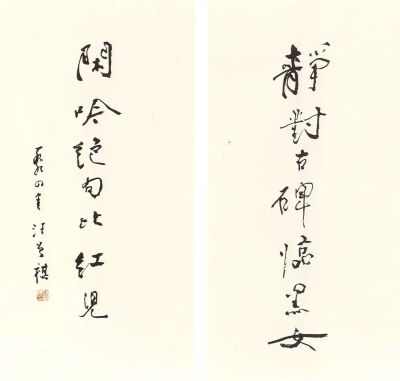 靜對古碑臨黑女
閑吟絕句比紅兒
一九九四年 汪曾祺